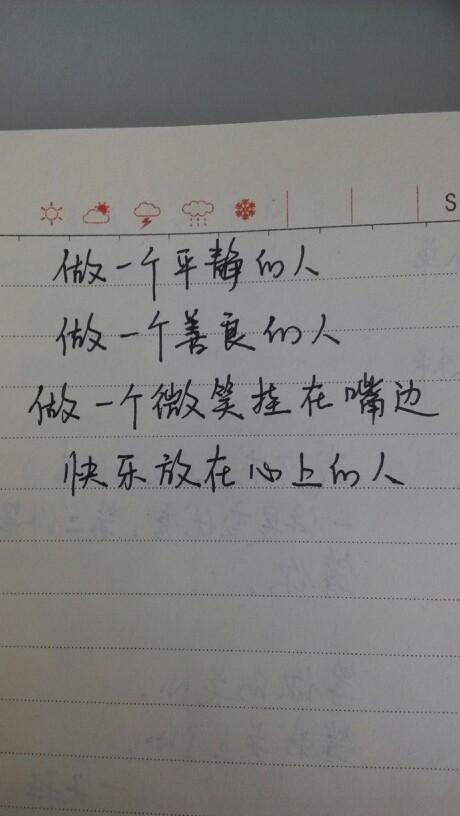 S
做一个平静的人
做一个善良的人
做一个微笑挂在嘴边
快乐放在心上的人